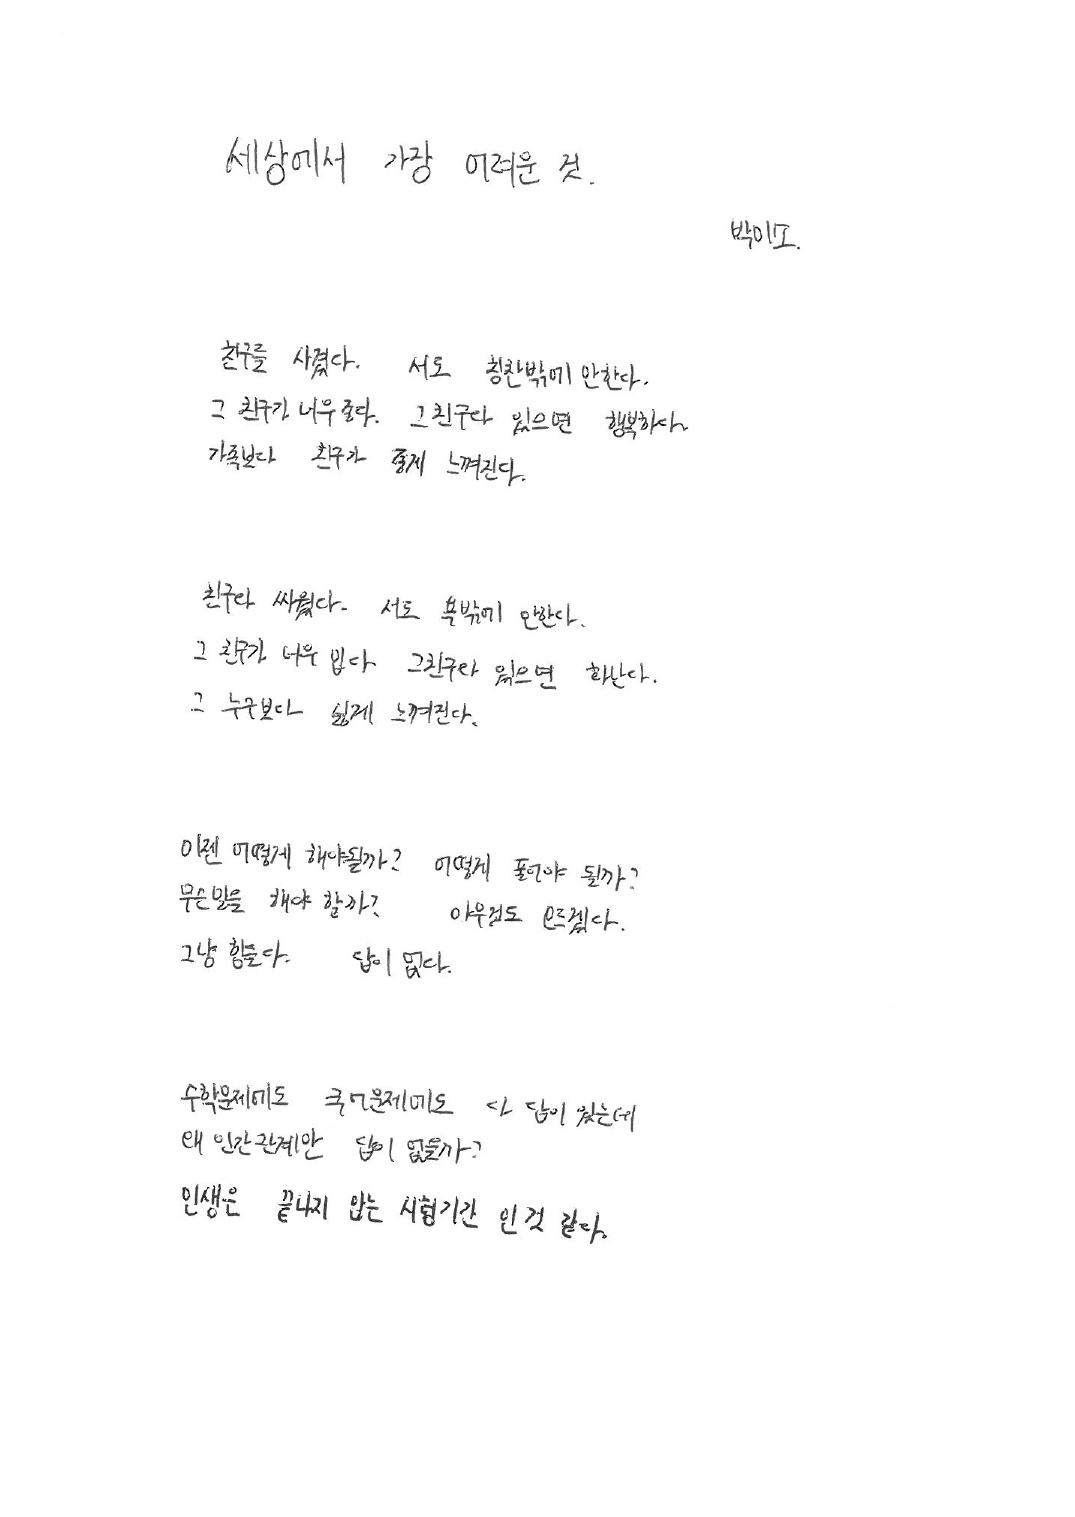 세상에서 가장 어려운 것.
친구를 사겼다. 서도 칭찬밖에 안한다.
그 친구가 너무 좋다. 그 친구랑 있으면 행복하다.
가족보다 친구가 좋게 느껴진다.
친구랑 싸웠다. 서도 욕밖에 안한다.
그 친구가 너무 밉다 그친구랑 있으면 화난다.
그 누구보다 싫게 느껴진다.
이젠 어떻게 해야될까? 어떻게 풀어야 될까?
무슨일을 해야 할까? 아무것도 모르겠다.
그냥 힘들다. 답이 없다.
수학문제에도 국어문제에도 다 답이 있는데
왜 인간관계만 답이 없을까?
인생은 끝나지 않는 시험기간 인 것 같다.